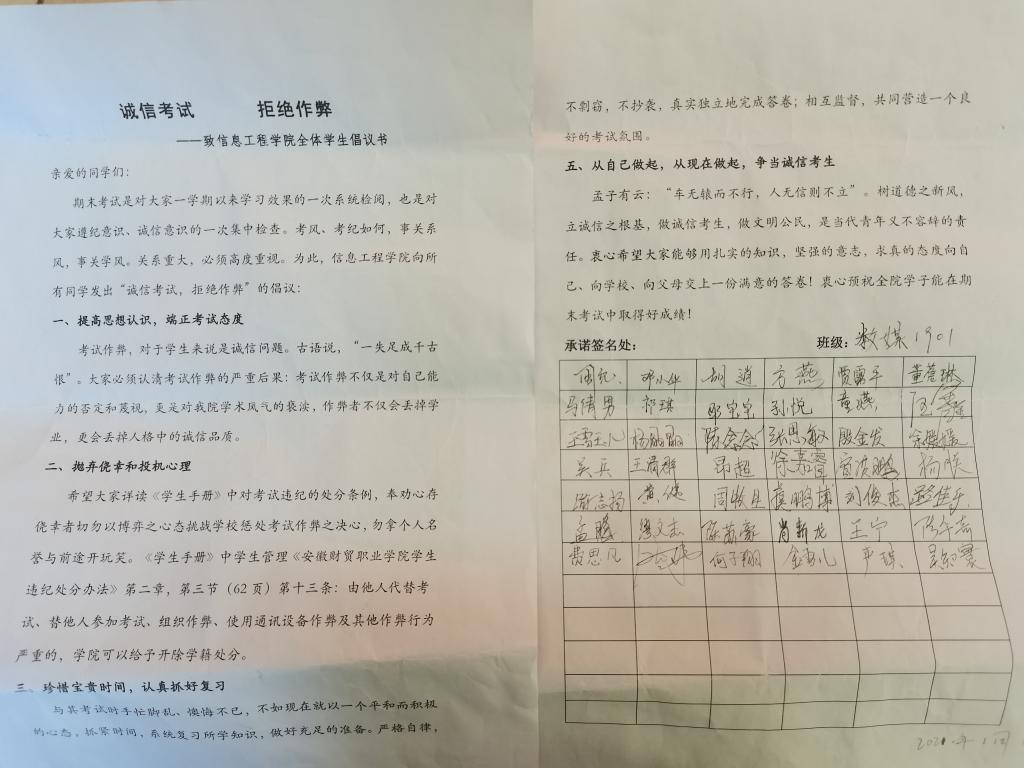 诚信考试 拒绝作弊
——致信息工程学院全体学生倡议书
亲爱的同学们：
期末考试是对大家一学期以来学习效果的一次系统检阅，也是对
大家遵纪意识、诚信意识的一次集中检查。考风、考纪如何，事关系
风，事关学风。关系重大，必须高度重视。为此，信息工程学院向所
有同学发出“诚信考试，拒绝作弊”的倡议：
一、提高思想认识，端正考试态度
考试作弊，对于学生来说是诚信问题。古语说，“一失足成千古
恨”。大家必须认清考试作弊的严重后果：考试作弊不仅是对自己能
力的否定和蔑视，更是对我院学术风气的亵渎，作弊者不仅会丢掉学
业，更会丢掉人格中的诚信品质。
二、抛弃侥幸和投机心理
希望大家详读《学生手册》中对考试违纪的处分条例，奉劝心存
侥幸者切勿以博弈之心态挑战学校惩处考试作弊之决心，勿拿个人名
誉与前途开玩笑。《学生手册》中学生管理《安徽财贸职业学院学生
违纪处分办法》第二章，第三节（62 页）第十三条：由他人代替考
试、替他人参加考试、组织作弊、使用通讯设备作弊及其他作弊行为
严重的，学院可以给予开除学籍处分。
三、珍惜宝贵时间，认真抓好复习
与其考试时手忙脚乱、懊悔不已，不如现在就以一个平和而积极
的心态，抓紧时间，系统复习所学知识，做好充足的准备。严格自律，
不剽窃，不抄袭，真实独立地完成答卷；相互监督，共同营造一个良
好的考试氛围。
五、从自己做起，从现在做起，争当诚信考生
孟子有云：“车无辕而不行，人无信则不立”。树道德之新风，
立诚信之根基，做诚信考生，做文明公民，是当代青年义不容辞的责
任。衷心希望大家能够用扎实的知识，坚强的意志，求真的态度向自
己、向学校、向父母交上一份满意的答卷！衷心预祝全院学子能在期
末考试中取得好成绩！
承诺签名处： 班级：数媒1901
邓小华 胡逍 方燕 贾露平 董莹琳
马倩男 祁琪 孙悦 童燕
杨丽丽 陈念念 张思敏 殷金发 余媛媛
吴兵 昂超 徐嘉睿 宣浪鹏 杨欣
周牧生 龚鹏博 刘俊杰
孟腾 肖新龙 王宁
费思凡 何子翔 严琪